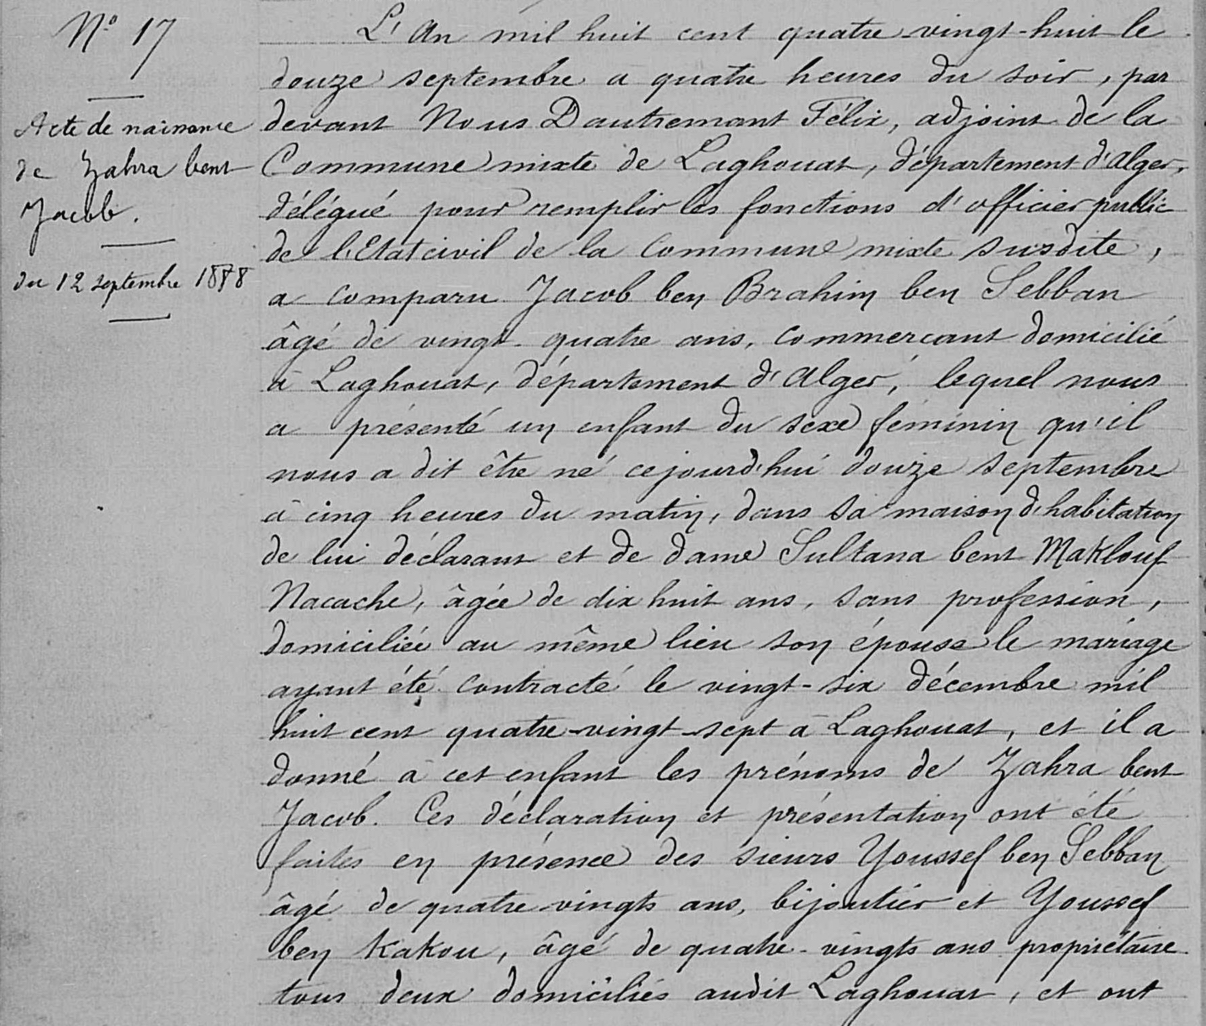 N° 17
Acte de naissance
de Zahra bent
Jacob.
du 12 septembre 1888
L'An mil huit cent quatre-vingt-huit le
douze septembre a quatre heures du soir, par
devant Nous Dautremant Félix, adjoint de la
Commune mixte de Laghouat, département d'Alger,
délégué pour remplir les fonctions d'officier public
de l'Etat civil de la Commune mixte susdite,
a comparu Jacob ben Brahim ben Sebban
âgé de vingt-quatre ans, commercant domicilié
à Laghouat, département d'Alger, lequel nous
a présenté un enfant du sexe féminin qu'il
nous a dit être né cejourd'hui douze septembre
à cinq heures du matin, dans sa maison d'habitation
de lui déclarant et de dame Sultana bent Maklouf
Nacache, âgée de dix huit ans, sans profession,
domiciliée au même lieu son épouse le mariage
ayant été contracté le vingt-six décembre mil
huit cent quatre-vingt-sept à Laghouat, et il a
donné à cet enfant les prénoms de Zahra bent
Jacob. Ces déclaration et présentation ont été
faites en présence des sieurs Youssef ben Sebban
âgé de quatre-vingts ans, bijoutier et Youssef
ben Kakou, âgé de quatre-vingts ans propriétaire
tous deux domiciliés audit Laghouat, et ont